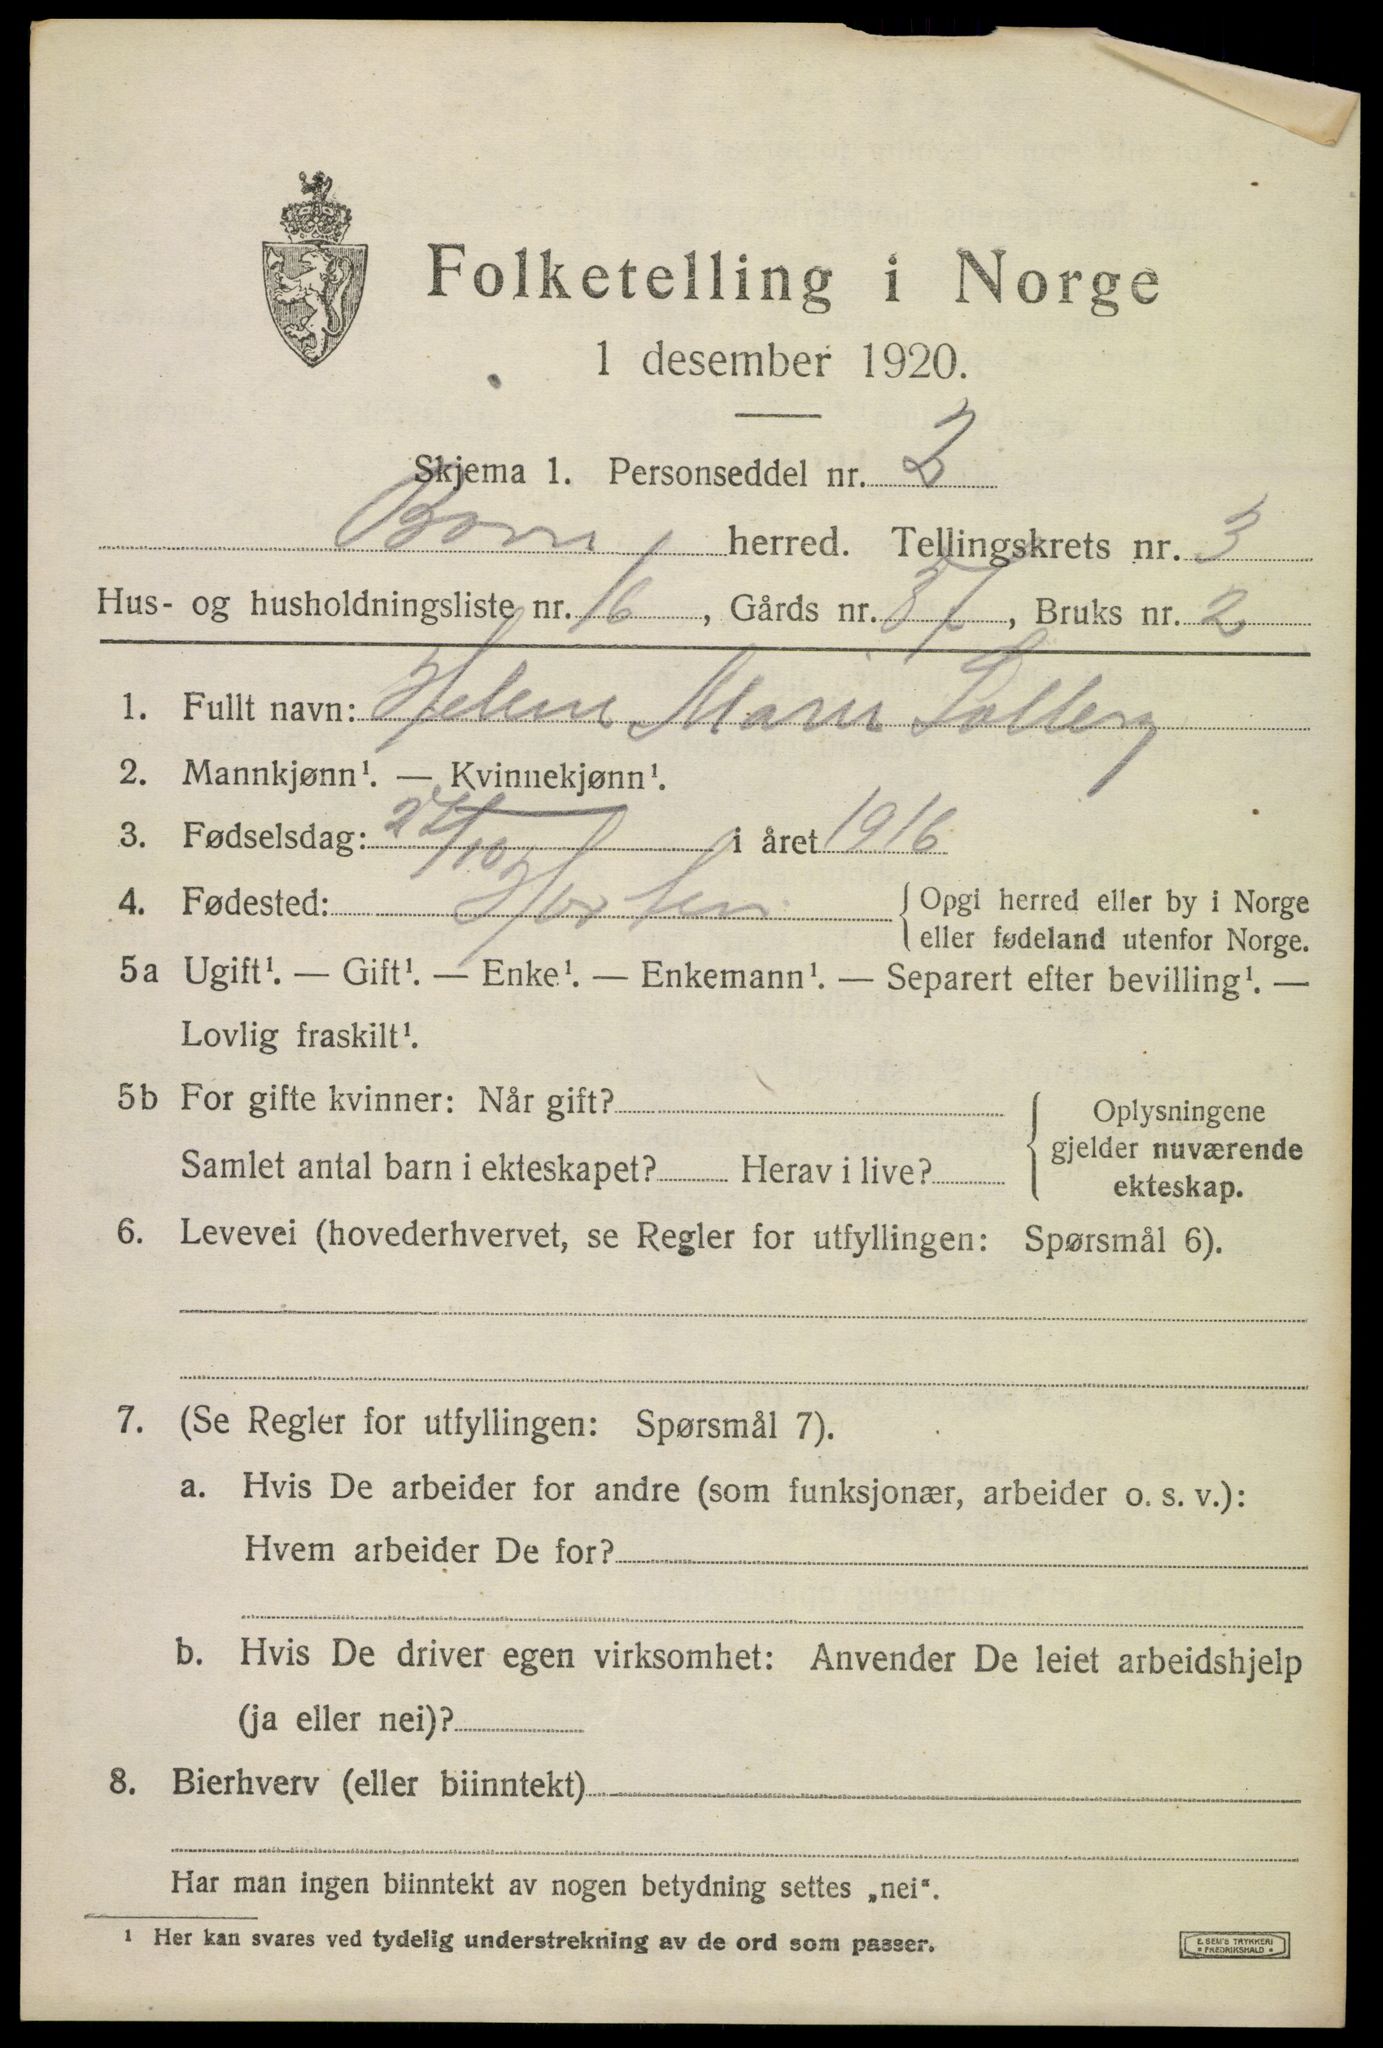 Folketelling i Norge
1 desember 1920.
Skjema 1. Personseddel nr. 2
Borre herred. Tellingskrets nr. 3
Hus- og husholdningsliste nr. 16, Gårds nr. 37, Bruks nr. 2
1. Fullt navn: Helene Marie Solberg
2. Mannkjønn¹. — Kvinnekjønn¹.
3. Fødselsdag: /10 i året 1916
4. Fødested: Horten { Opgi herred eller by i Norge
eller fødeland utenfor Norge.
5a Ugift¹. — Gift¹. — Enke¹. — Enkemann¹. — Separert efter bevilling¹. —
Lovlig fraskilt¹.
5b For gifte kvinner: Når gift?
Samlet antal barn i ekteskapet? Herav i live?
{ Oplysningene
gjelder nuværende
ekteskap.
6. Levevei (hovederhvervet, se Regler for utfyllingen: Spørsmål 6).
7. (Se Regler for utfyllingen: Spørsmål 7).
a. Hvis De arbeider for andre (som funksjonær, arbeider o. s. v.):
Hvem arbeider De for?
b. Hvis De driver egen virksomhet: Anvender De leiet arbeidshjelp
(ja eller nei)?
8. Bierhverv (eller biinntekt)
Har man ingen biinntekt av nogen betydning settes „nei“.
¹ Her kan svares ved tydelig understrekning av de ord som passer.
E. SEM'S TRYKKERI
• FREDRIKSHALD •